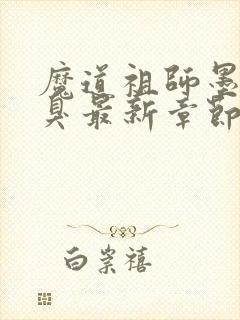 魔道祖師墨
臭最新章節
白崇禧